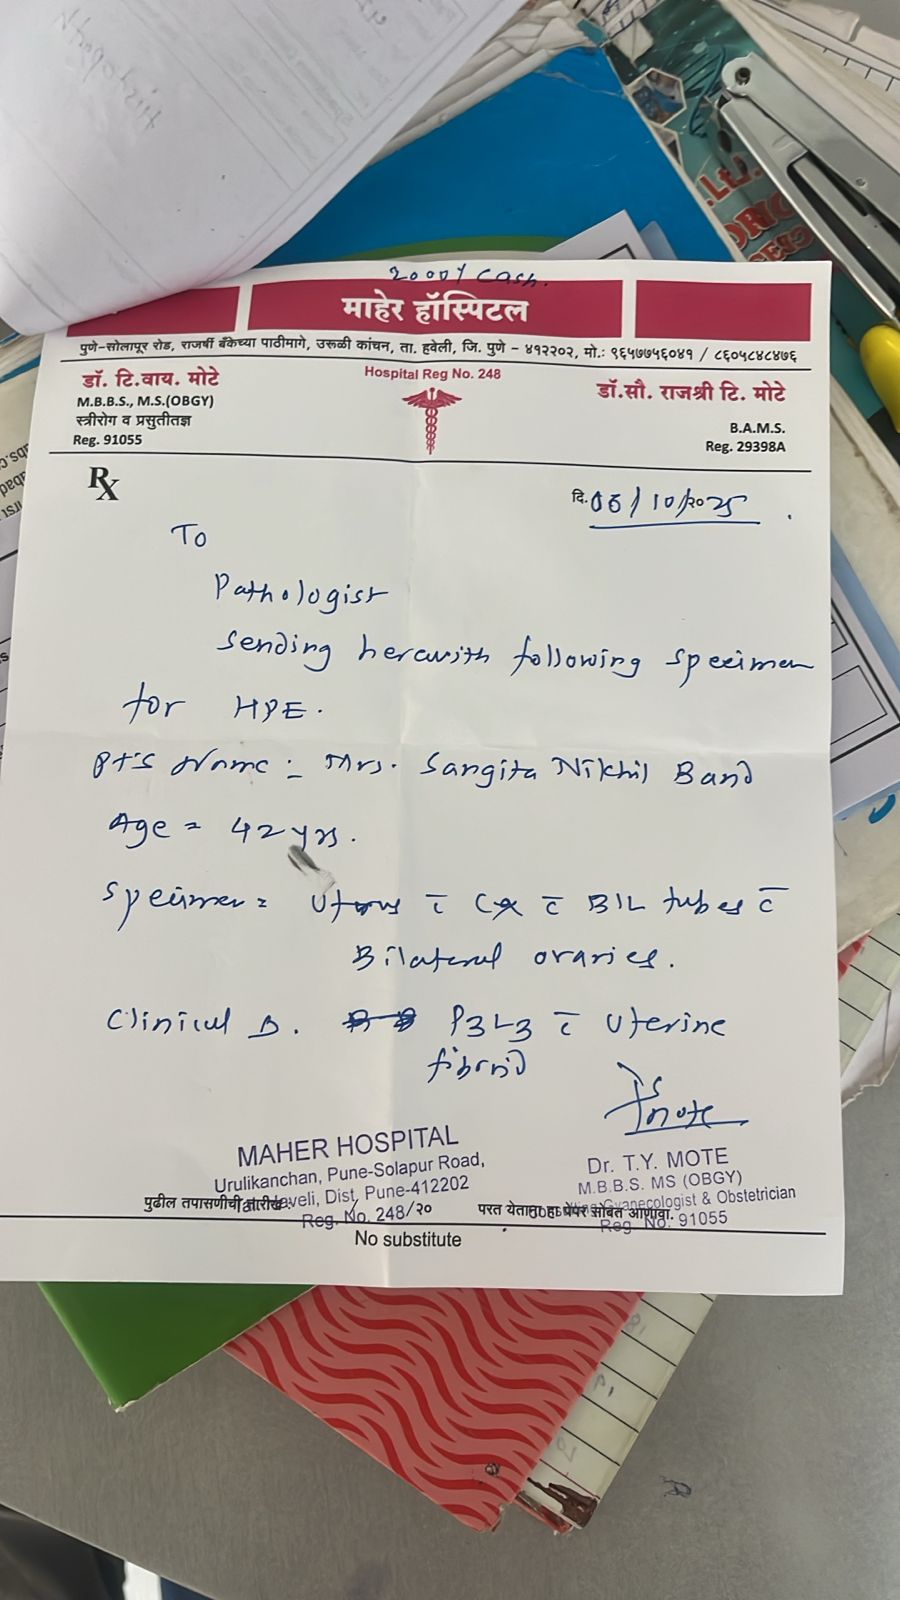 2000/ cash.
माहेर हॉस्पिटल
पुणे-सोलापूर रोड, राजर्षी बँकेच्या पाठीमागे, उरूळी कांचन, ता. हवेली, जि. पुणे - ४१२२०२, मो.: ९६५७७५६०४१ / ८६०५८४८४७६
Hospital Reg No. 248
डॉ. टि.वाय. मोटे
M.B.B.S., M.S.(OBGY)
स्त्रीरोग व प्रसुतीतज्ञ
Reg. 91055
डॉ.सौ. राजश्री टि. मोटे
B.A.M.S.
Reg. 29398A
Rx
दि. 06/10/2025
To
Pathologist
Sending herewith following specimen
for HPE.
Pt's Name:- Mrs. Sangita Nikhil Band
Age = 42 yrs.
Specimen = Uterus c̄ Cx c̄ B/L tubes c̄
Bilateral ovaries.
Clinical D. P3L3 c̄ Uterine
fibroid
Tmote
MAHER HOSPITAL
Urulikanchan, Pune-Solapur Road,
Haveli, Dist, Pune-412202
Reg. No. 248/२०
Dr. T.Y. MOTE
M.B.B.S. MS (OBGY)
Gyanecologist & Obstetrician
Reg. No. 91055
पुढील तपासणीची तारीख:
परत येताना हा पेपर सोबत आणावा.
No substitute